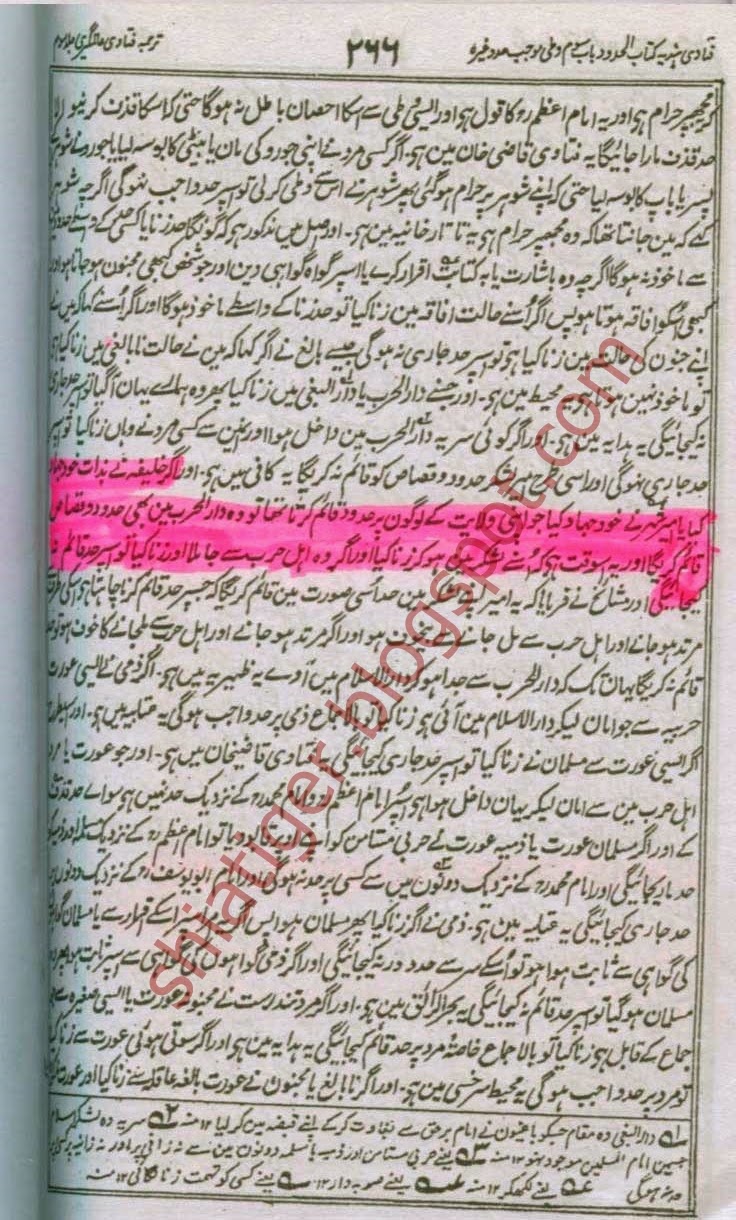 فتاوی ہندیہ کتاب الحدود باب سوم وطی موجب حد وغیرہ
۲۶۶
ترجمہ فتاوی عالمگیری جلد سوم
مجھپر حرام ہی اور یہ امام اعظم رح کا قول ہی اور ایسی وطی سے اسکا احصان باطل نہ ہوگا حتی کہ اسکا قذف کرنیوالا
حد قذف مارا جائیگا یہ فتاوی قاضی خان مین ہی۔ اگر کسی مرد نے اپنی جورو کی مان یا بیٹی کا بوسہ لیا یا جورو نے شوہر کے
پسر یا باپ کا بوسہ لیا حتی کہ اپنے شوہر پر حرام ہوگئی پھر شوہر نے اس سے وطی کر لی تو اسپر حد واجب نہوگی اگرچہ شوہر
کہے کہ مین جانتا تھا کہ وہ مجھپر حرام ہی یہ تاتارخانیہ مین ہی۔ اور اصل مین مذکور ہی کہ گونگا حد زنا یا کسی
سے ماخوذ نہ ہوگا اگرچہ وہ باشارت یا بہ کتابت اقرار کرے یا اسپر گواہ گواہی دین اور جو شخص کبھی مجنون ہو جاتا ہو اور
کبھی اسکو افاقہ ہوتا ہو پس اگر اسنے حالت افاقہ مین زنا کیا تو حد زنا کے واسطے ماخوذ ہوگا اور اگر اسنے کہا کہ مین نے
اپنے جنون کی حالت مین زنا کیا ہی تو اسپر حد جاری نہ ہوگی جیسے بالغ نے اگر کہا کہ مین نے حالت نابالغی مین زنا کیا ہی
تو ماخوذ نہین ہوتا ہی یہ محیط مین ہی۔ اور جسنے دار الحرب یا دار البغی مین زنا کیا پھر وہ ہمارے یہان آگیا تو اسپر حد جاری
نہ کیجائیگی یہ ہدایہ مین ہی۔ اور اگر کوئی سریہ دار الحرب مین داخل ہوا اور انمین سے کسی مرد نے وہان زنا کیا تو اسپر
حد جاری نہوگی اور اسی طرح امیر لشکر حدود و قصاص کو قائم نہ کریگا یہ کافی مین ہی۔ اور اگر خلیفہ نے بذات خود جہاد
کیا یا امیر شہر نے خود جہاد کیا جو اپنی ولایت کے لوگون پر حدود قائم کرتا تھا تو وہ دار الحرب مین بھی حدود و قصاص
قائم کریگا اور یہ اسوقت ہی کہ اسنے لشکر مین ہو کر زنا کیا اور اگر وہ اہل حرب سے جا ملا اور زنا کیا تو اسپر حد قائم نہ
کیجائیگی اور مشائخ نے فرمایا کہ یہ امیر اپنے لشکر مین حد اسی صورت مین قائم کریگا کہ جسپر حد قائم کرنا چاہتا ہی اسکی طرف
مرتد ہو جانے اور اہل حرب سے مل جانے سے بیخوف ہو اور اگر مرتد ہو جانے اور اہل حرب سے ملجانے کا خوف ہو تو حد
قائم نہ کریگا یہان تک کہ دار الحرب سے جدا ہو کر دار الاسلام مین آوے یہ ظہیریہ مین ہی۔ اگر ذمی نے ایسی عورت
حربیہ سے جو امان لیکر دار الاسلام مین آئی ہی زنا کیا تو بالاجماع ذمی پر حد واجب ہوگی یہ عتابیہ مین ہی۔ اور اسیطرح
اگر ایسی عورت سے مسلمان نے زنا کیا تو اسپر حد جاری کیجائیگی یہ فتاوی قاضیخان مین ہی۔ اور جو عورت یا مرد
اہل حرب مین سے امان لیکر یہان داخل ہوا ہی اسپر امام اعظم رح و امام محمد رح کے نزدیک حد نہین ہی سواے حد قذف
کے اور اگر مسلمان عورت یا ذمیہ عورت نے حربی مستامن کو اپنے اوپر قابو دیا تو امام اعظم رح کے نزدیک مسلمہ اور ذمیہ کو
حد ماریجائیگی اور امام محمد رح کے نزدیک دونون مین سے کسی پر حد نہ ہوگی اور امام ابو یوسف رح کے نزدیک دونون پر
حد جاری کیجائیگی یہ مین ہی۔ ذمی نے اگر زنا کیا پھر مسلمان ہوا پس اگر یہ امر اسکے اقرار سے یا مسلمان گواہون
کی گواہی سے ثابت ہوا ہو تو اسکے سر سے حد دور نہ کیجائیگی اور اگر ذمی گواہون کی گواہی سے اسپر ثابت ہوا پھر
مسلمان ہوگیا تو اسپر حد قائم نہ کیجائیگی یہ بحر الرائق مین ہی۔ اور اگر مرد تندرست نے مجنونہ عورت یا ایسی صغیرہ سے جو
جماع کے قابل ہی زنا کیا تو بالاجماع خاصۃ مرد پر حد قائم کیجائیگی یہ ہدایہ مین ہی اور اگر سوتی ہوئی عورت سے زنا کیا
تو مرد پر حد واجب ہوگی یہ محیط سرخسی مین ہی۔ اور اگر نابالغ یا مجنون نے عورت بالغہ عاقلہ سے زنا کیا اور عورت
۱؎ دار البغی وہ مقام جسکو باغیون نے امام برحق سے بغاوت کرکے اپنے قبضہ مین کر لیا ۱۲ منہ ۲؎ سریہ وہ لشکر اسلام
جسمین امام المسلمین موجود نہو ۱۲ منہ ۳؎ یعنے حربی مستامن اور ذمیہ یا مسلمہ دونون مین سے نہ زانی پر اور نہ زانیہ پر کسی پر
حد نہوگی ۔ یعنے لکھکر ۱۲ منہ یعنے صوبہ دار ۱۲ یعنے کسی کو تہمت زنا لگائی ۱۲ منہ
shiatiger.blogspot.com